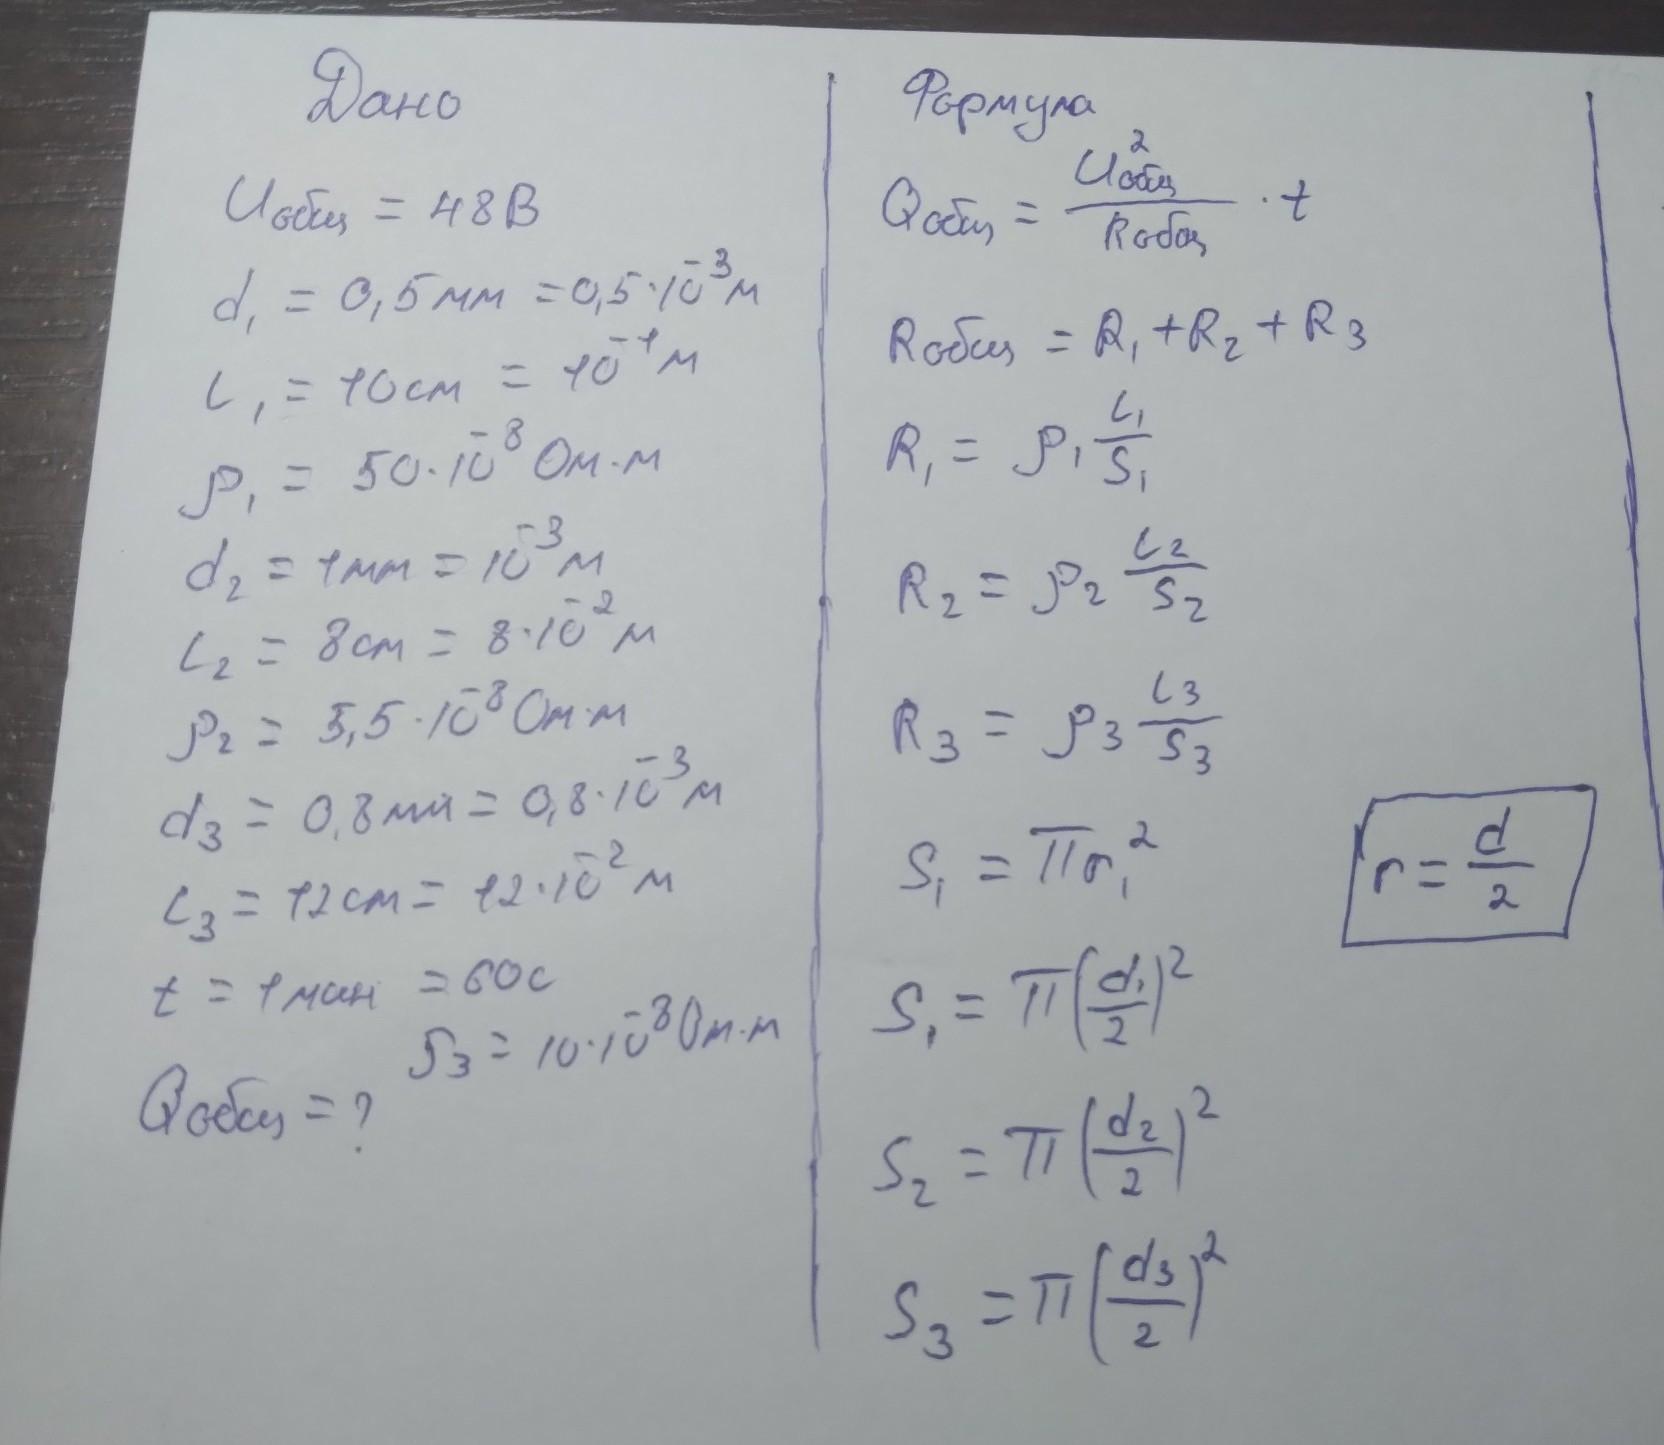 Дано
Uобщ = 48В
d₁ = 0,5мм = 0,5·10⁻³м
L₁ = 10см = 10⁻¹м
ρ₁ = 50·10⁻⁸ Ом·м
d₂ = 1мм = 10⁻³м
L₂ = 8см = 8·10⁻²м
ρ₂ = 5,5·10⁻⁸Ом·м
d₃ = 0,8мм = 0,8·10⁻³м
L₃ = 12см = 12·10⁻²м
t = 1мин = 60с
ρ₃ = 10·10⁻⁸Ом·м
Qобщ = ?
Формула
Qобщ = U²общ / Rобщ · t
Rобщ = R₁ + R₂ + R₃
R₁ = ρ₁ L₁/S₁
R₂ = ρ₂ L₂/S₂
R₃ = ρ₃ L₃/S₃
S₁ = πr₁²
r = d/2
S₁ = π(d₁/2)²
S₂ = π(d₂/2)²
S₃ = π(d₃/2)²